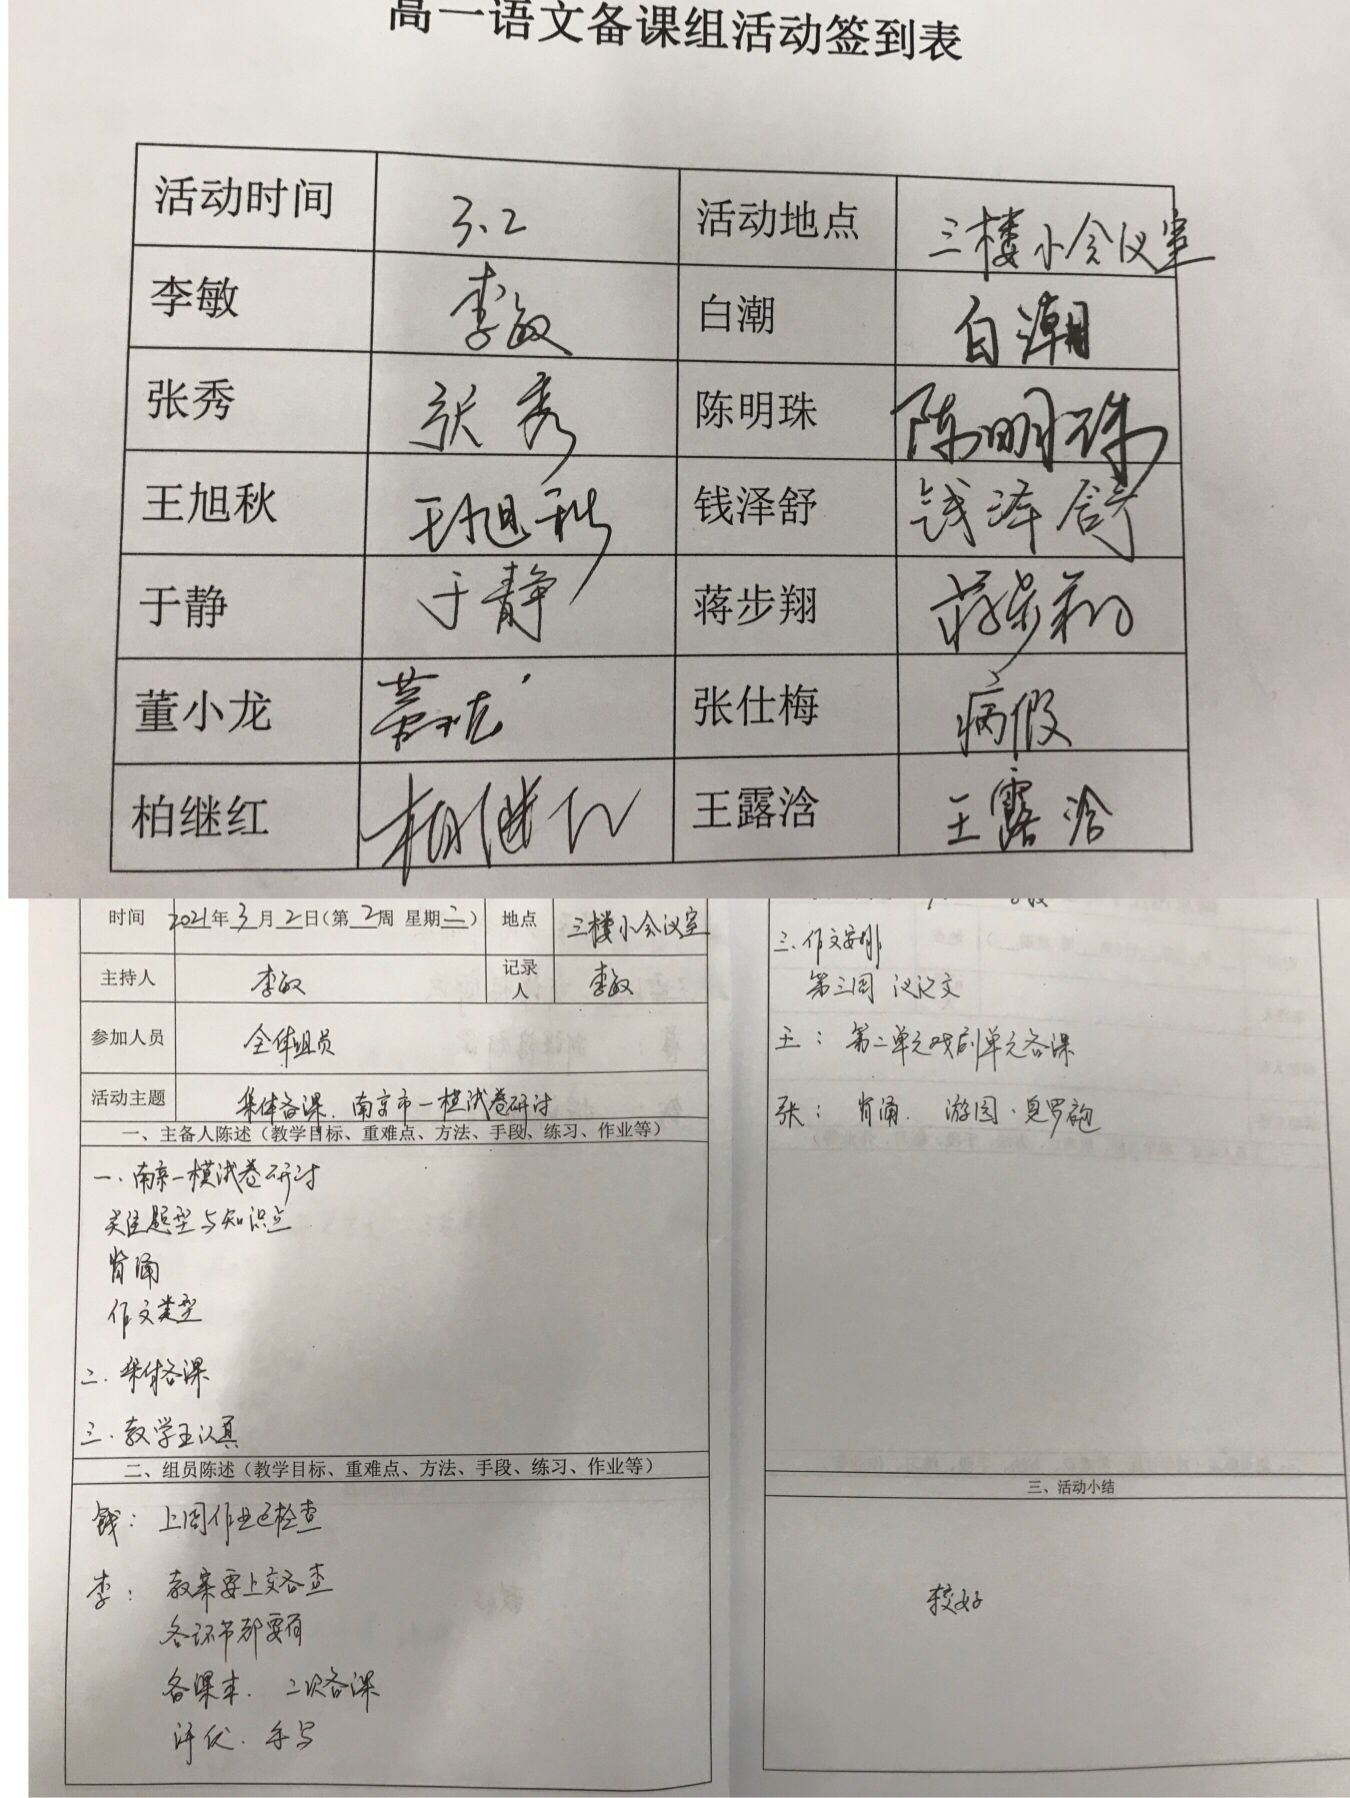 高一语文备课组活动签到表
活动时间 3.2 活动地点 三楼小会议室
李敏 李敏 白潮 白潮
张秀 张秀 陈明珠 陈明珠
王旭秋 王旭秋 钱泽舒 钱泽舒
于静 于静 蒋步翔 蒋步翔
董小龙 董小龙 张仕梅 病假
柏继红 柏继红 王露浛 王露浛
时间 2021年3月2日(第2周 星期二) 地点 三楼小会议室
主持人 李敏 记录人 李敏
参加人员 全体组员
活动主题 集体备课、南京市一模试卷研讨
一、主备人陈述（教学目标、重难点、方法、手段、练习、作业等）
一.南京一模试卷研讨
关注题型与知识点
背诵
作文类型
二.集体备课
三.教学五认真
二、组员陈述（教学目标、重难点、方法、手段、练习、作业等）
钱：上周作业已检查
李：教案要上交备查
各环节都要有
备课本. 二次备课
详优. 手写
三.作文安排
第三周 议论文
王：第二单元戏剧单元备课
张：背诵. 游园.皂罗袍
三、活动小结
较好